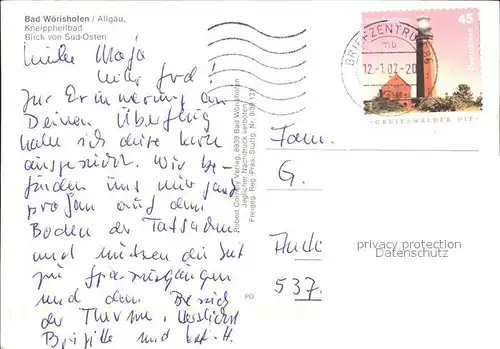 Bad Wörishofen / Allgäu,
Kneippheilbad
Blick von Süd-Osten
Liebe Maja
lieber Fred!
Zur Erinnerung an
Deinen Überflug
habe ich diese Karte
ausgesucht. Wir be-
finden uns nur ganz
profan auf dem
Boden der Tatsachen
und nutzen die Zeit
zu Spaziergängen
und dem Besuch
der Therme. Herzlichst
Brigitte und
Robert Conrady Verlag, 8939 Bad Wörishofen
Jeglicher Nachdruck verboten
Freigeg. Reg.-Präs. Stuttg. Nr.
PO
Fam.
G.
537.
BRIEFZENTRUM 86
mb
12.-1.07-20
45
Deutschland
GREIFSWALDER OIE
privacy protection
Datenschutz